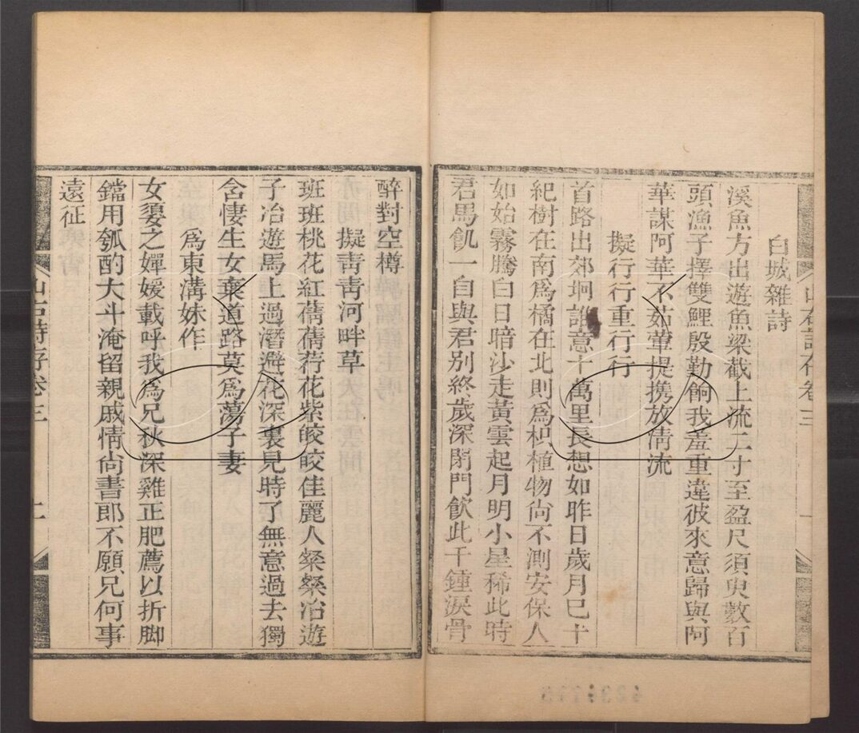 白城雜詩
溪魚方出遊魚梁截上流二寸至盈尺須臾數百
頭漁子擇雙鯉殷勤餉我羞重違彼來意歸與阿
華謀阿華不茹葷提携放清流
擬行行重行行
首路出郊坰誰意十萬里長想如昨日歲月已十
紀樹在南爲橘在北則爲枳植物尙不測安保人
如始霧騰白日暗沙走黃雲起月明小星稀此時
君馬飢一自與君別終歲深閉門飮此千鍾淚骨
醉對空樽
擬靑靑河畔草
班班桃花紅蒨蒨荇花紫皎皎佳麗人粲粲冶遊
子冶遊馬上過潛避花深裏見時了無意過去獨
含悽生女棄道路莫爲蕩子妻
爲東溝妹作
女嬃之嬋媛載呼我爲兄秋深雞正肥薦以折脚
鐺用瓠酌大斗淹留親戚情尙書郎不願兄何事
遠征
山右詩存卷三